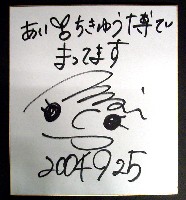 あい♡ちきゅう博で
まってます
mai
2004925